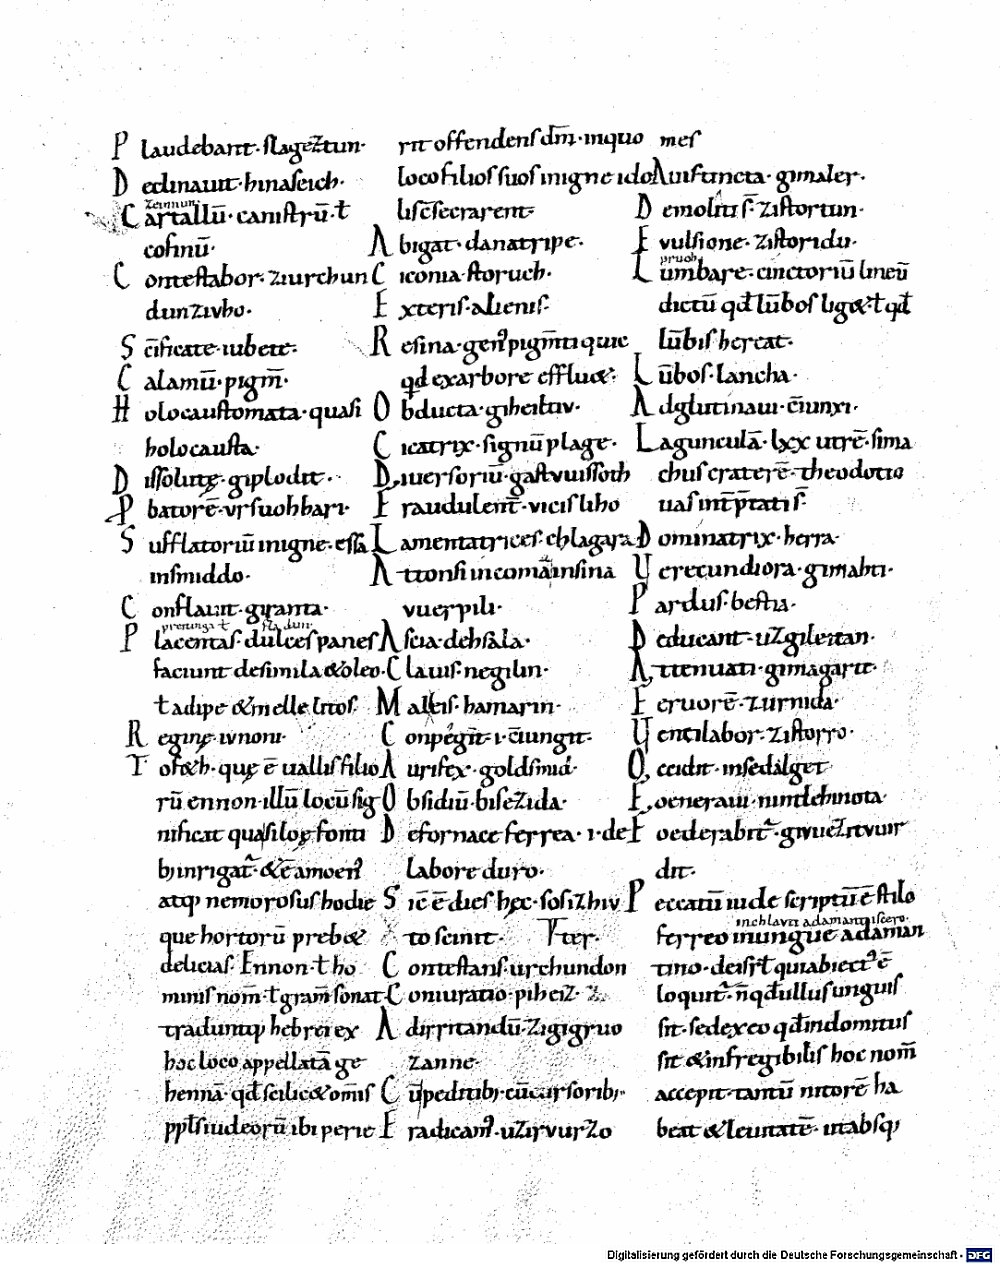 Plaudebant· slageztun·
Declinauit· hinaseich·
zeinnun
Cartallū· canistrū· ł
cofinū·
Contestabor· ziurchun
dunzivho·
Sc̄ificate· iubete·
Calamū· pigm̄·
Holocaustomata· quasi
holocausta·
Dissolutę· giplodit·
Pbatorē· vrsuohhari·
Sufflatoriū inigne· essa
insmiddo·
Conflauit· giranta·
Placentas· dulces panes
faciunt desimila & oleo·
ł adipe & melle
Reginę· ivnoni·
Tofeth· quę ē uallis filio
rū ennon· illū locū sig
nificat qua siloę fonti
bȝ inrigat᷑· & ē amoen᷒
atqȝ nemorosus hodie
que hortorū preb&
delicias· Ennon· ł ho
minis nom̄· ł gram̄ sonat
traduntqȝ hebrei ex
hoc loco appellatā ge
hennā· qđ scilic& om̄is
ppl̄s iudeorū ibi perie
rit offendens dm̄· inquo
loco filios suos inigne ido
lis c̄secrarent·
Abigat· danatripe·
Ciconia· storuch·
Exteris· alienis·
Resina· gen᷒ pigm̄ti quic
qđ exarbore efflu&·
Obducta· giheilav·
Cicatrix· signū plage·
Diuersoriū· gastvuissoth
Fraudulent̄· vicisliho
Lamentatrices· chlagara
Attonsi incomā insina
vuerpili·
Ascia· dehsala·
Clauis· negilin·
Malleis· hamarin·
Conpegit̄· i· c̄iungit·
Aurifex· goldsmid·
Obsidiū· bisezida·
Defornace ferrea· i· de
labore duro·
Sic̄ ē dies hęc· sosizhiv
to scinit· Iter·
Contestans· urchundon
Coniuratio· piheiz·
Adirritandū· zigigruo
zanne·
Cūpeditibȝ· cū cursoribȝ·
Eradicam᷒· uzirvurzo
mes
Auifuncta· gimaler·
Demoliti s̄· zistortun·
Evulsione· zistoridu·
pruoh
Lumbare· cinctoriū lineū
dictū qđ lūbos lig&· ł qđ
lūbis hereat·
Lūbos· lancha·
Adglutinaui· c̄iunxi·
Lagunculā· lxx utrē· sima
chus craterē· theodotio
uas int̄p̄tati s̄·
Dominatrix· herra·
Uerecundiora· gimahti·
Pardus· bestia·
Deducant· uzgileitan·
Attenuati· gimagarit·
Feruorē· zurnida·
Uentilabor· zistorro·
Occidit· insedalget
Foeneraui·
Foederabit᷑· givuezitvuir
dit·
Peccatū iude scriptū ē stilo
inchlavu adamantiscero·
ferreo inungue adaman
tino· deisrł quia biect᷒ ē
loquit᷑· n̄ qđ ullus unguis
sit· sed ex eo qđ indomitus
sit & infregibilis hoc nom̄
accepit· tantū nitorē ha
beat & leuitatē· ut absqȝ
Digitalisierung gefördert durch die Deutsche Forschungsgemeinschaft - DFG